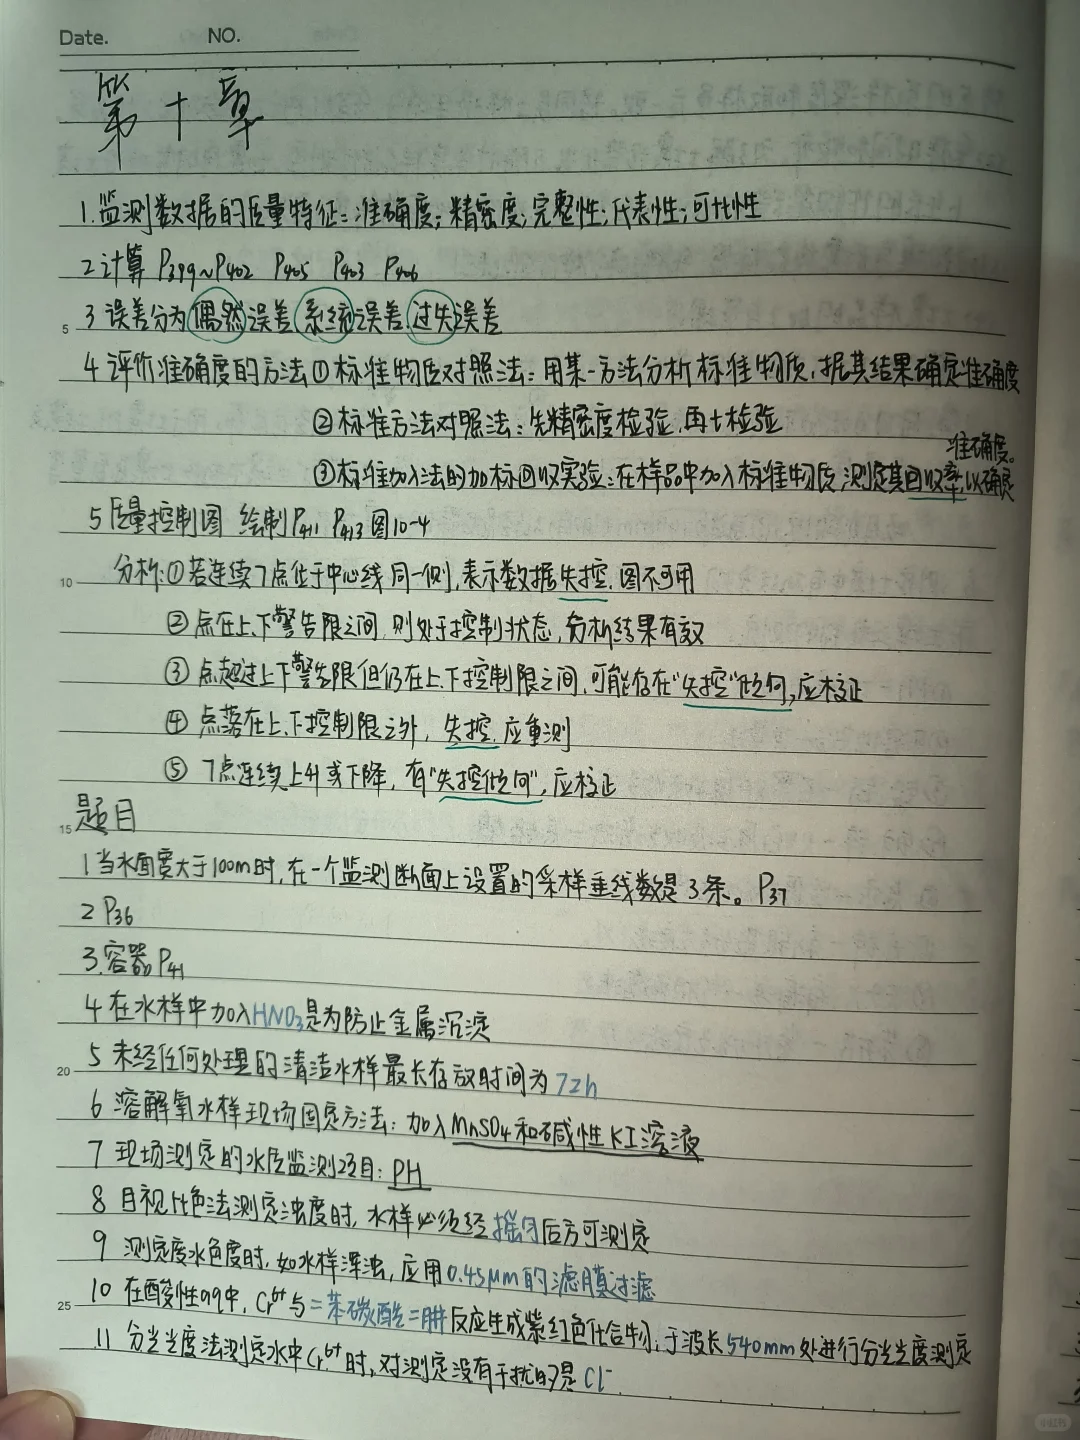 Date. NO.
第十章
1.监测数据的质量特征:准确度;精密度;完整性;代表性;可比性
2 计算 P399~P402 P405 P403 P406
3 误差分为偶然误差 系统误差 过失误差
5
4 评价准确度的方法①标准物质对照法:用某一方法分析标准物质,据其结果确定准确度
②标准方法对照法:先精密度检验,再t检验
③标准加入法的加标回收实验:在样品中加入标准物质,测定其回收率,以确定
准确度。
5 质量控制图 绘制P411 P413 图10-4
10
分析:①若连续7点位于中心线同一侧,表示数据失控,图不可用
②点在上、下警告限之间,则处于控制状态,分析结果有效
③点超过上下警告限但仍在上、下控制限之间,可能存在"失控"倾向,应校正
④点落在上、下控制限之外,失控,应重测
⑤7点连续上升或下降,有"失控倾向",应校正
15
题目
1 当水面宽大于100m时,在一个监测断面上设置的采样垂线数是3条。P37
2 P36
3.容器 P41
4 在水样中加入HNO3是为防止金属沉淀
20
5 未经任何处理的清洁水样最长存放时间为72h
6 溶解氧水样现场固定方法:加入MnSO4和碱性KI溶液
7 现场测定的水质监测项目:PH
8 目视比色法测定浊度时,水样必须经摇匀后方可测定
9 测定度水色度时,如水样浑浊,应用0.45μm的滤膜过滤
25
10 在酸性aq中,Cr6+与二苯碳酰二肼反应生成紫红色化合物,于波长540mm处进行分光光度测定
11 分光光度法测定水中Cr6+时,对测定没有干扰的是Cl-
小红书